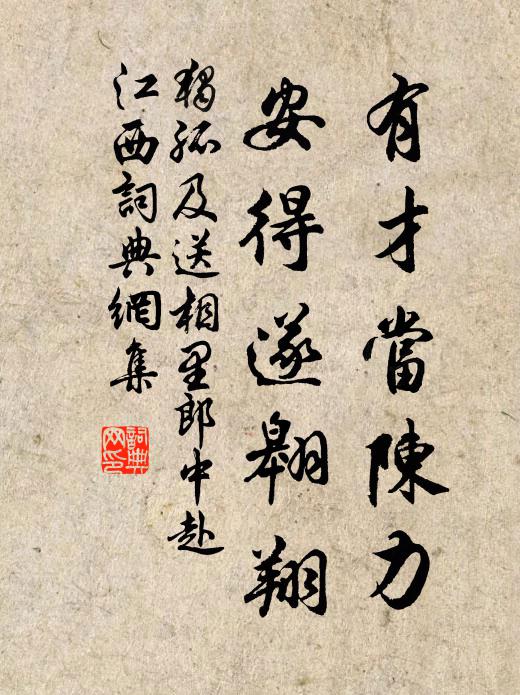 有才當陳力
安得遂翱翔
獨孤及送相里郎中赴
江西詞典網集
詞典網印